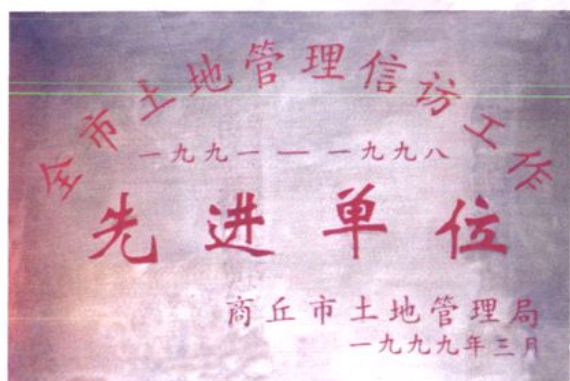 全市土地管理信访工作
一九九一——一九九八
先进单位
商丘市土地管理局
一九九九年三月